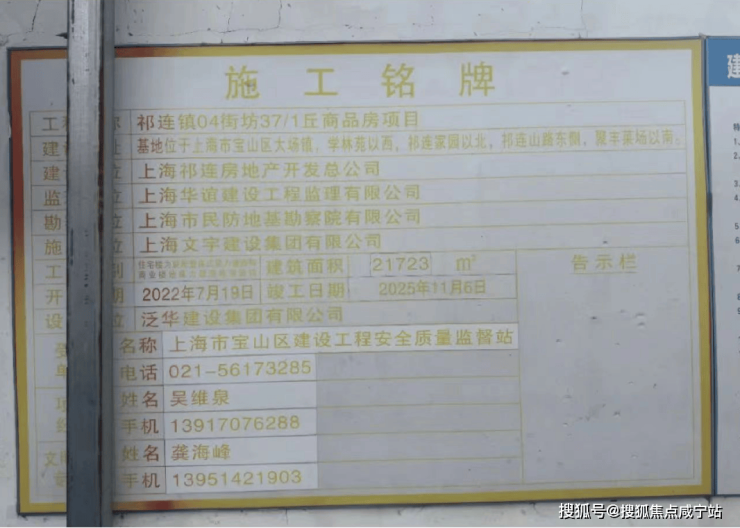 施工铭牌
工 称 祁连镇04街坊37/1丘商品房项目
建 址 基地位于上海市宝山区大场镇，学林苑以西，祁连家园以北，祁连山路东侧，聚丰菜场以南。
建 位 上海祁连房地产开发总公司
监 位 上海华谊建设工程监理有限公司
勘 位 上海市民防地基勘察院有限公司
施 位 上海文宇建设集团有限公司
工 别 建筑面积 21723 m² 告示栏
开 期 2022年7月19日 竣工日期 2025年11月6日
设 位 泛华建设集团有限公司
名称 上海市宝山区建设工程安全质量监督站
电话 021-56173285
姓名 吴维泉
手机 13917076288
姓名 龚海峰
手机 13951421903
建
搜狐号@搜狐焦点咸宁站